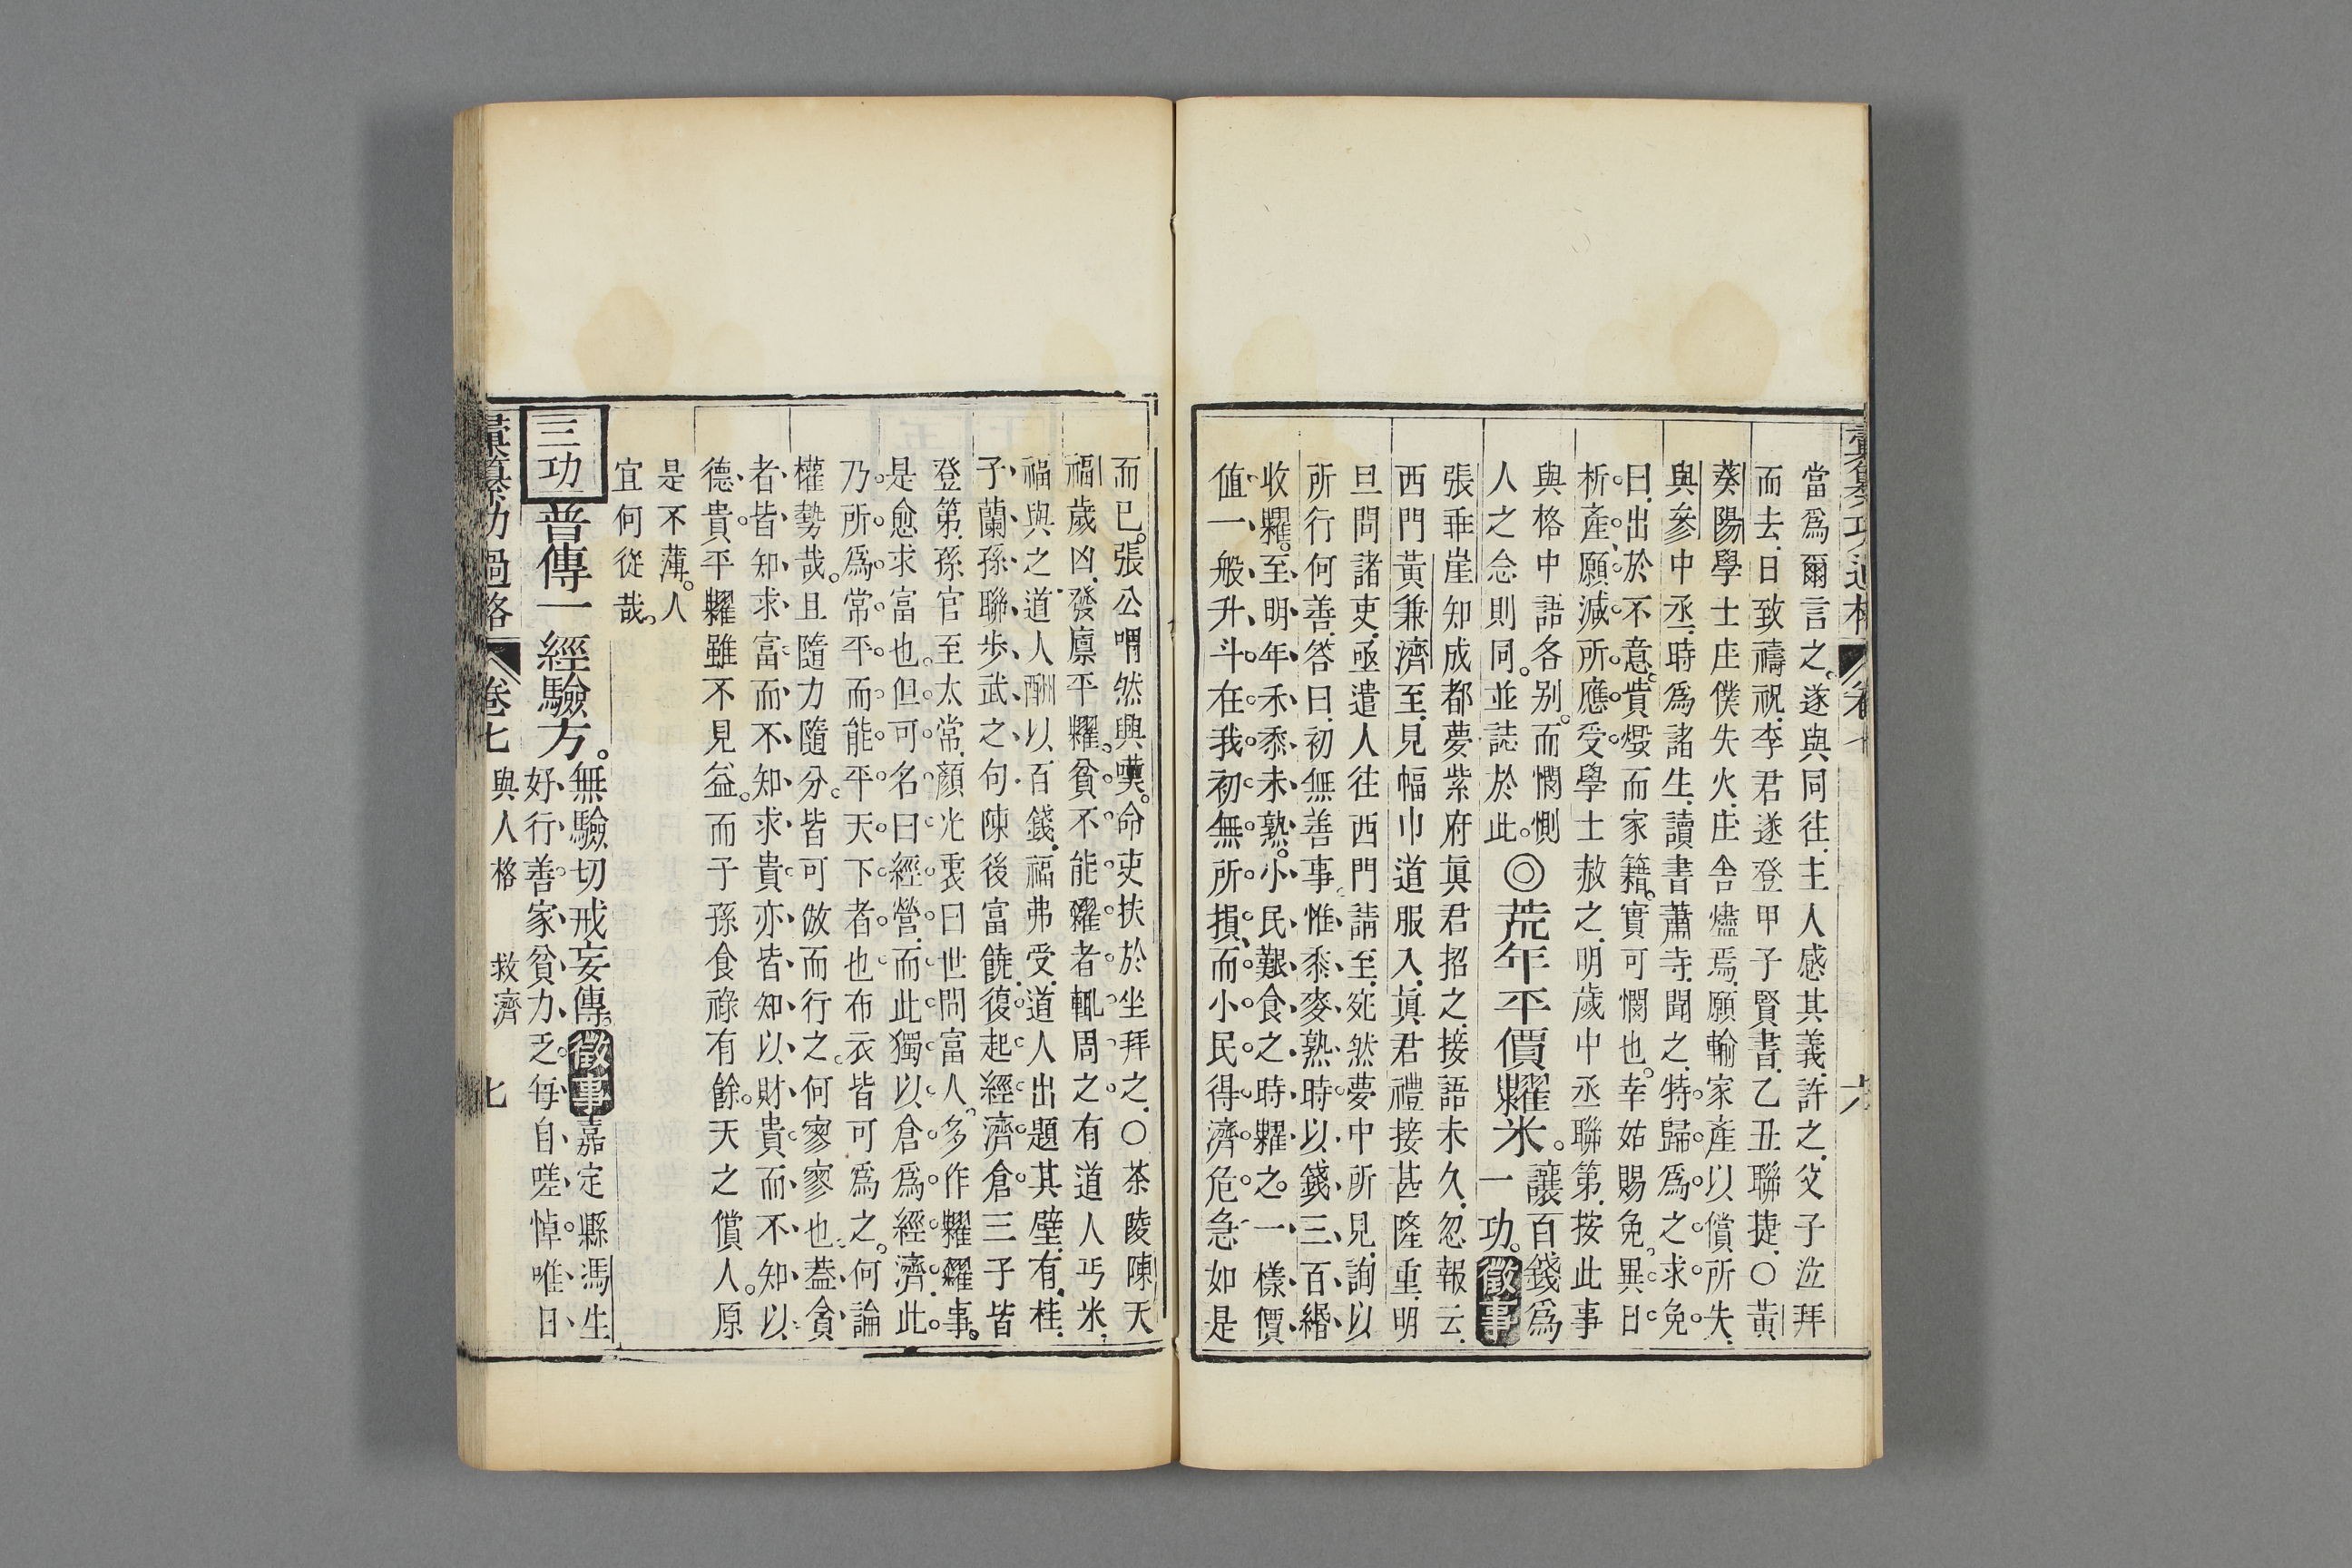 彙纂功過格 卷七 六
當爲爾言之。遂與同往。主人感其義。許之。父子泣拜
而去。日致禱祝。李君遂登甲子賢書。乙丑聯捷。〇黃
葵陽學士庄僕失火。庄舍燼焉。願輸家產以償所失。
與參中丞。時爲諸生。讀書蕭寺。聞之。特歸爲之求免。
曰。出於不意。貲燬而家籍。實可憫也。幸姑賜免。異日
析產。願減所應受。學士赦之。明歲中丞聯第。按此事
與格中語各别。而憫惻
人之念則同。並誌於此。◎荒年平價糶米。讓百錢爲
一功。徵事
張乖崖知成都夢紫府眞君招之。接語未久。忽報云。
西門黃兼濟至。見幅巾道服入。眞君禮接甚隆重。明
旦問諸吏。亟遣人往西門請至。宛然夢中所見。詢以
所行何善。答曰。初無善事。惟黍麥熟時。以錢三百緡
收糶。至明年禾黍未熟。小民艱食之時糶之。一樣價
值。一般升斗。在我初無所損。而小民得濟危急。如是
而已。張公喟然興嘆。命吏扶於坐拜之。〇茶陵陳天
福歲凶。發廩平糶。貧不能糴者。輒周之。有道人丐米。
福與之。道人酬以百錢。福弗受。道人出題其壁。有桂
子蘭孫聯步武之句。陳後富饒。復起經濟倉。三子皆
登第。孫官至太常。顏光衷曰。世間富人。多作糶糴事。
是愈求富也。但可名曰經營。而此獨以倉爲經濟。此
乃所爲常平而能平天下者也。布衣皆可爲之。何論
權勢哉。且隨力隨分。皆可倣而行之。何寥寥也。葢貪
者皆知求富而不知求貴。亦皆知以財貴而不知以
德貴。平糶雖不見益。而子孫食祿有餘。天之償人。原
是不薄。人
宜何從哉。
三功 普傳一經驗方。無驗切戒妄傳。徵事 嘉定縣馮生
好行善。家貧力乏。每自嗟悼。唯日
彙纂功過格 卷七 與人格 救濟 七